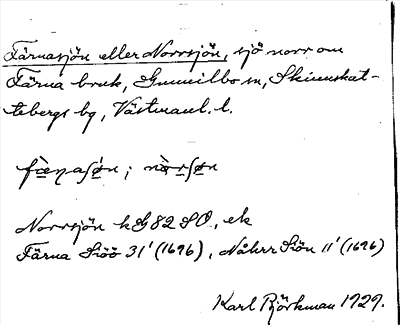 Färnasjön eller Norrsjön, sjö norr om
Färna bruk, Gunnilbo sn, Skinnskat-
tebergs bg, Västmanl. l.
Norrsjön hG82 SO, ek
Färna Siöö 31' (1696), Nåhrr Siön 11' (1696)
Karl Björkman 1929.